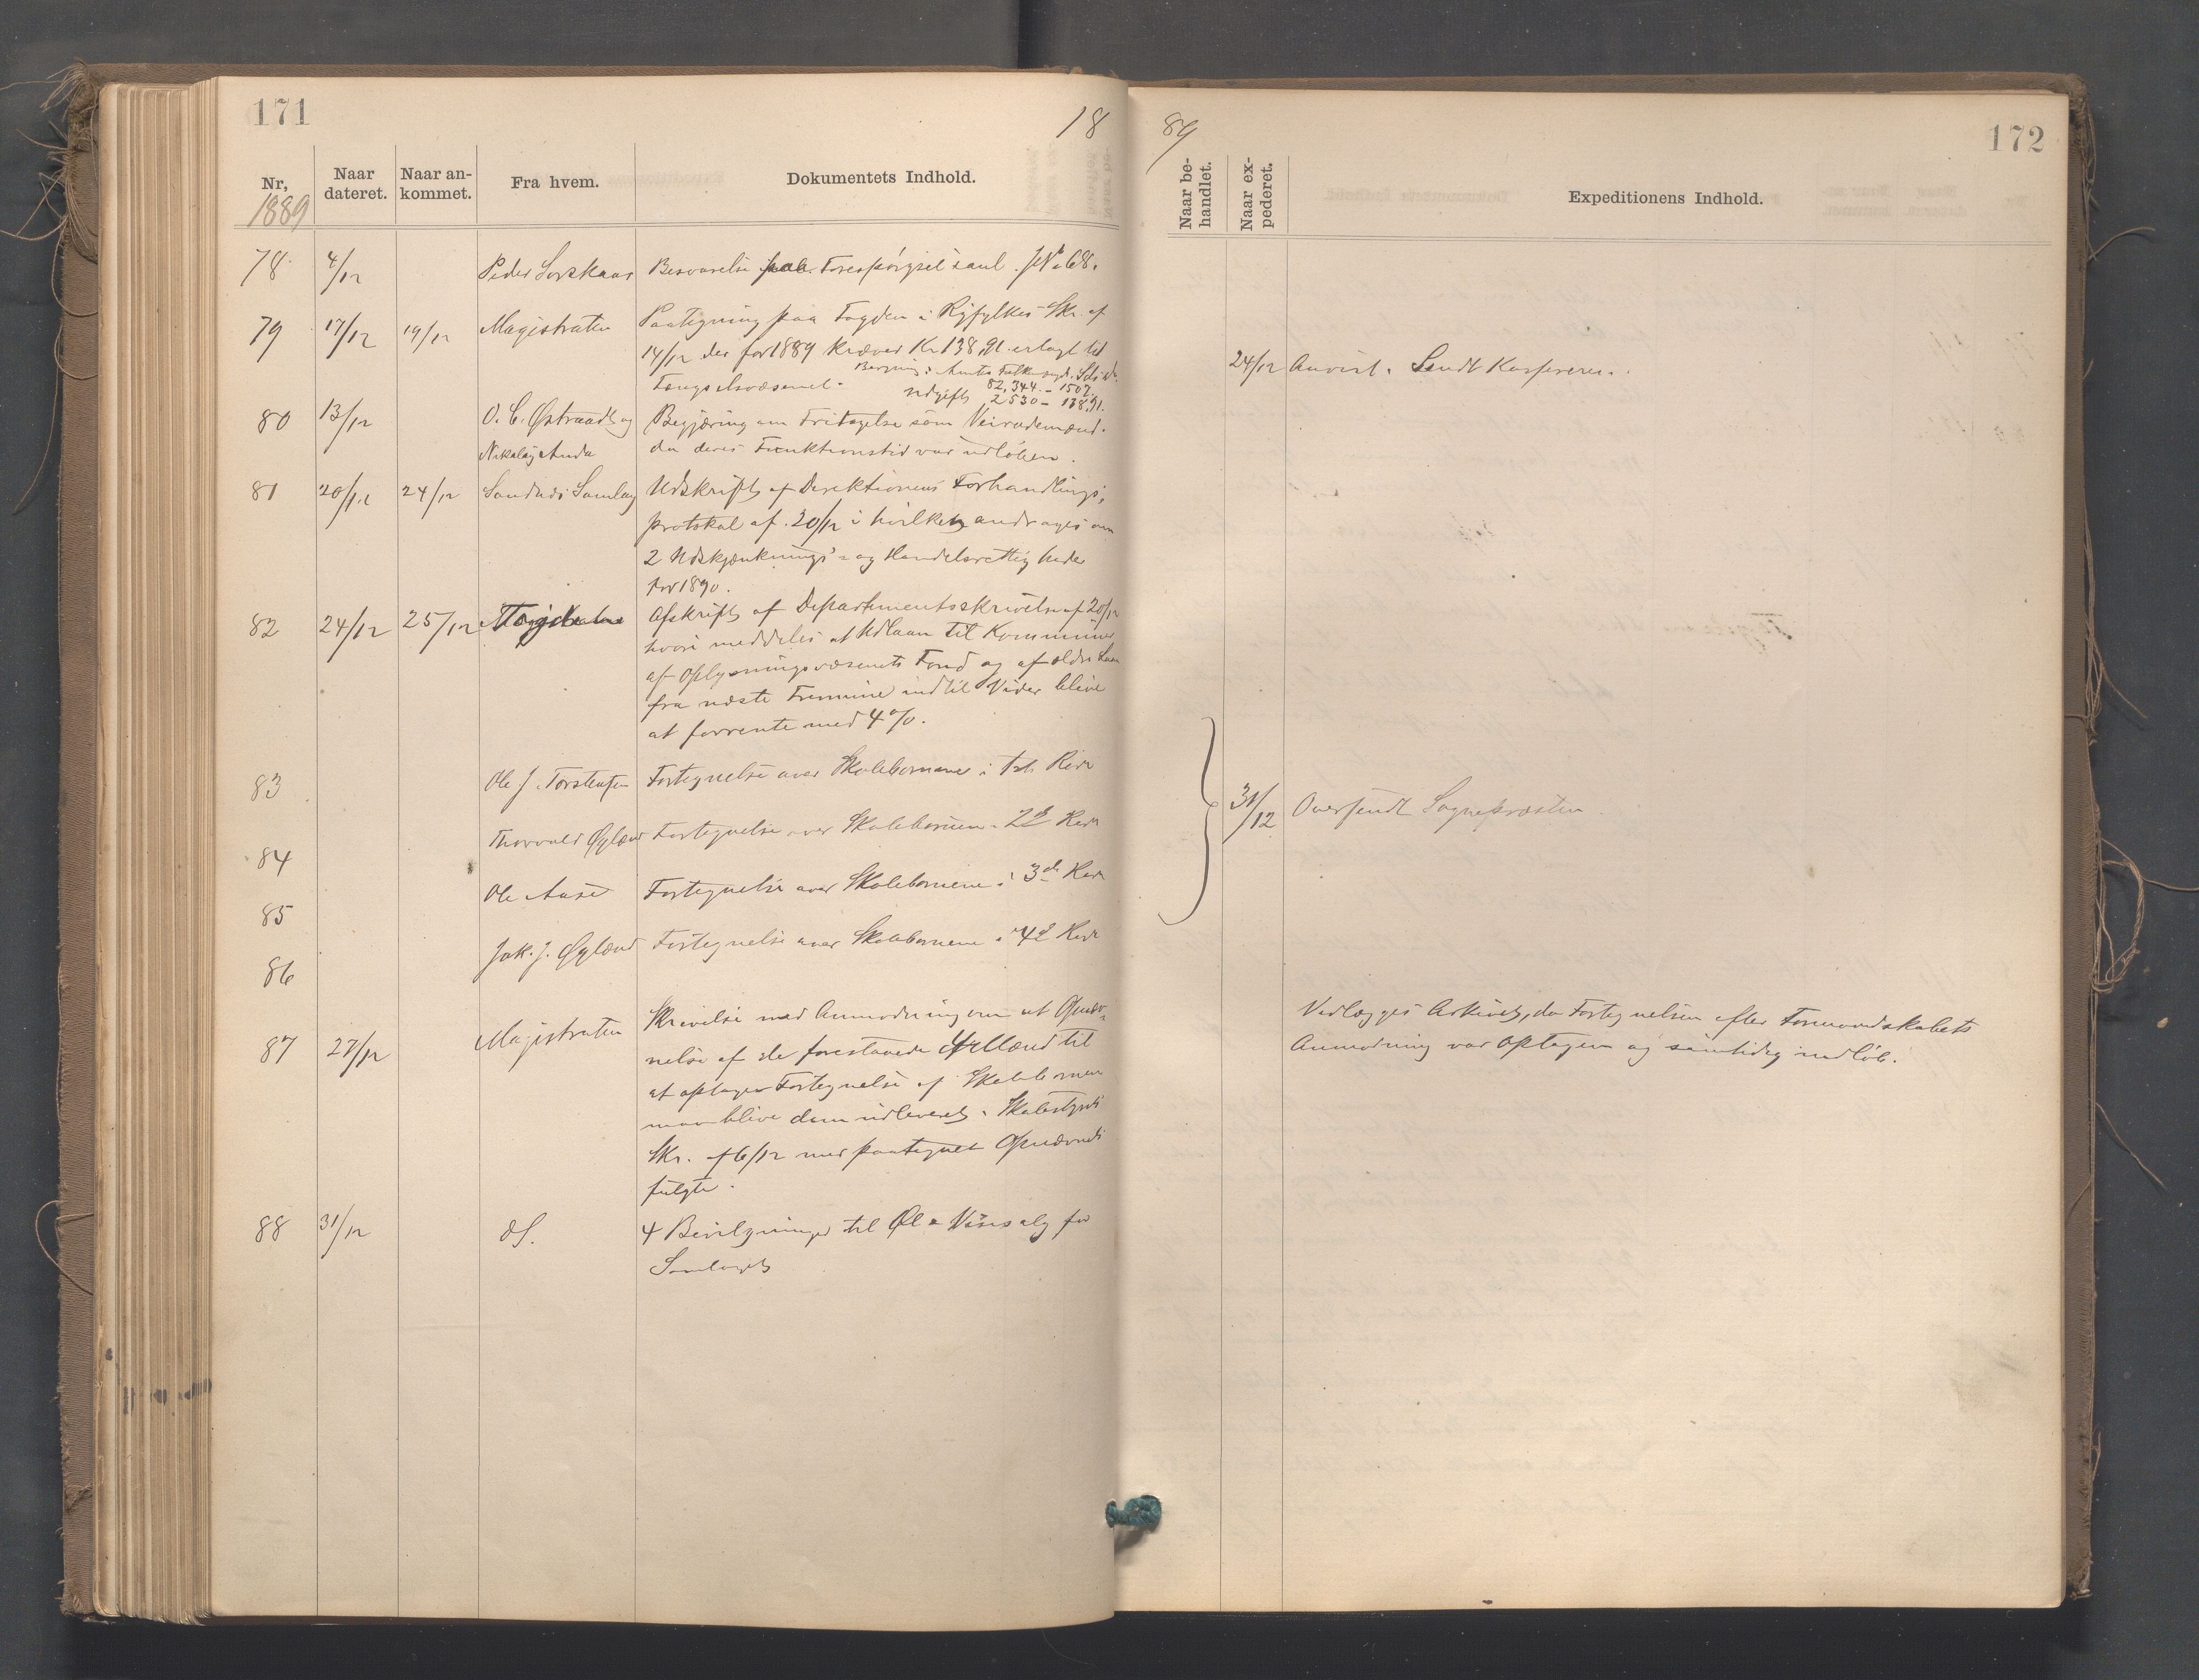 171
18
89
172
Nr,
1889
Naar dateret.
Naar an-kommet.
Fra hvem.
Dokumentets Indhold.
Naar be-handlet.
Naar ex-pederet.
Expeditionens Indhold.
78 4/12 Peder Besvarelse paa Forespørgsel No 68.
79 17/12 19/12 Magistraten Paategning paa Fogden i Ryfylkes Skr. af
14/12 der for 1889 kræver Kr 138,91 erlagt til
Fængselsvæsenet.
82,344 - 1507.
Udgift 2530 - 138,91.
24/12 Anvist. Sendt Kassereren.
80 13/12 O. C. Østraadt og Begjæring om Fritagelse som Veirodemænd.
Nikolay Auda da deres Funktionstid var udløben.
81 20/12 24/12 Sandnes Samlag Udskrift af Direktionens Forhandlings-
protokol af 20/12 i hvilken andrages om
2 Udskjænknings- og Handelsrettigheder
for 1890.
82 24/12 25/12 Afskrift af Departementsskrivelse af 20/12
hvori meddeles at Udlaan til Kommuner
af Oplysningsvæsenets Fond og af ældre Laan
fra næste Termine indtil Videre blive
at forrente med 4%.
83 Ole J. Torstensen Fortegnelse over Skolebørnene i 1ste Rode
84 Thorvald Øglænd Fortegnelse over Skolebørnene i 2d Rode
31/12 Oversendt Sognepræsten
85 Ole Aase Fortegnelse over Skolebørnene i 3de Rode
86 Jak. J. Øglænd Fortegnelse over Skolebørnene i 4d Rode
87 27/12 Magistraten Skrivelse med Anmodning om at Opnæv-
nelse af de forestaaende 4 Mænd til
at optage Fortegnelse af Skolebørnene
maa blive dem udleveret. Skolestyrets
Skr. af 6/12 med paategnet Opnævnels
fulgte.
Vedlægges Arkivet, da Fortegnelsen efter Formandskabets
Anmodning var optagen og samtidig indløb.
88 31/12 dS. 4 Bevilgninger til Øl & Vinsalg for
Samlaget